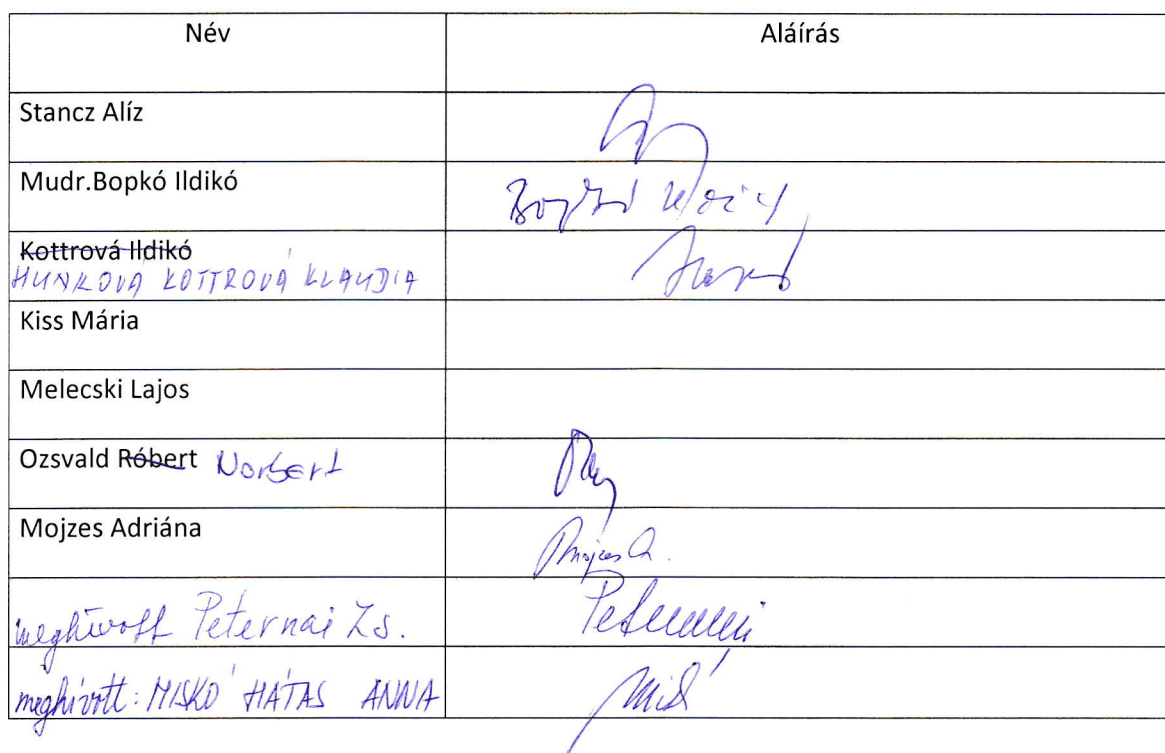 Név Aláírás
Stancz Alíz
Mudr.Bopkó Ildikó
Kottrová Ildikó
HUNKOVÁ KOTTROVÁ KLAUDIA
Kiss Mária
Melecski Lajos
Ozsvald Róbert Norbert
Mojzes Adriána Mojzes A.
meghívott Peternai Zs. Peternai
meghívott: MISKÓ HÁTAS ANNA